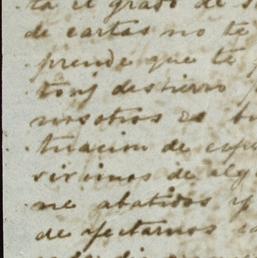 ta el grado de
de cartas no te
prende que te
destierro
nosotros es
tuacion de
vivimos de alg
ne abatidos y
de afectarnos